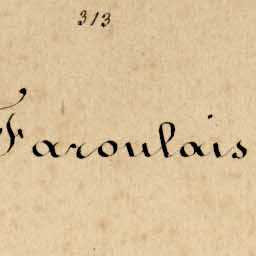 313
Faroulais